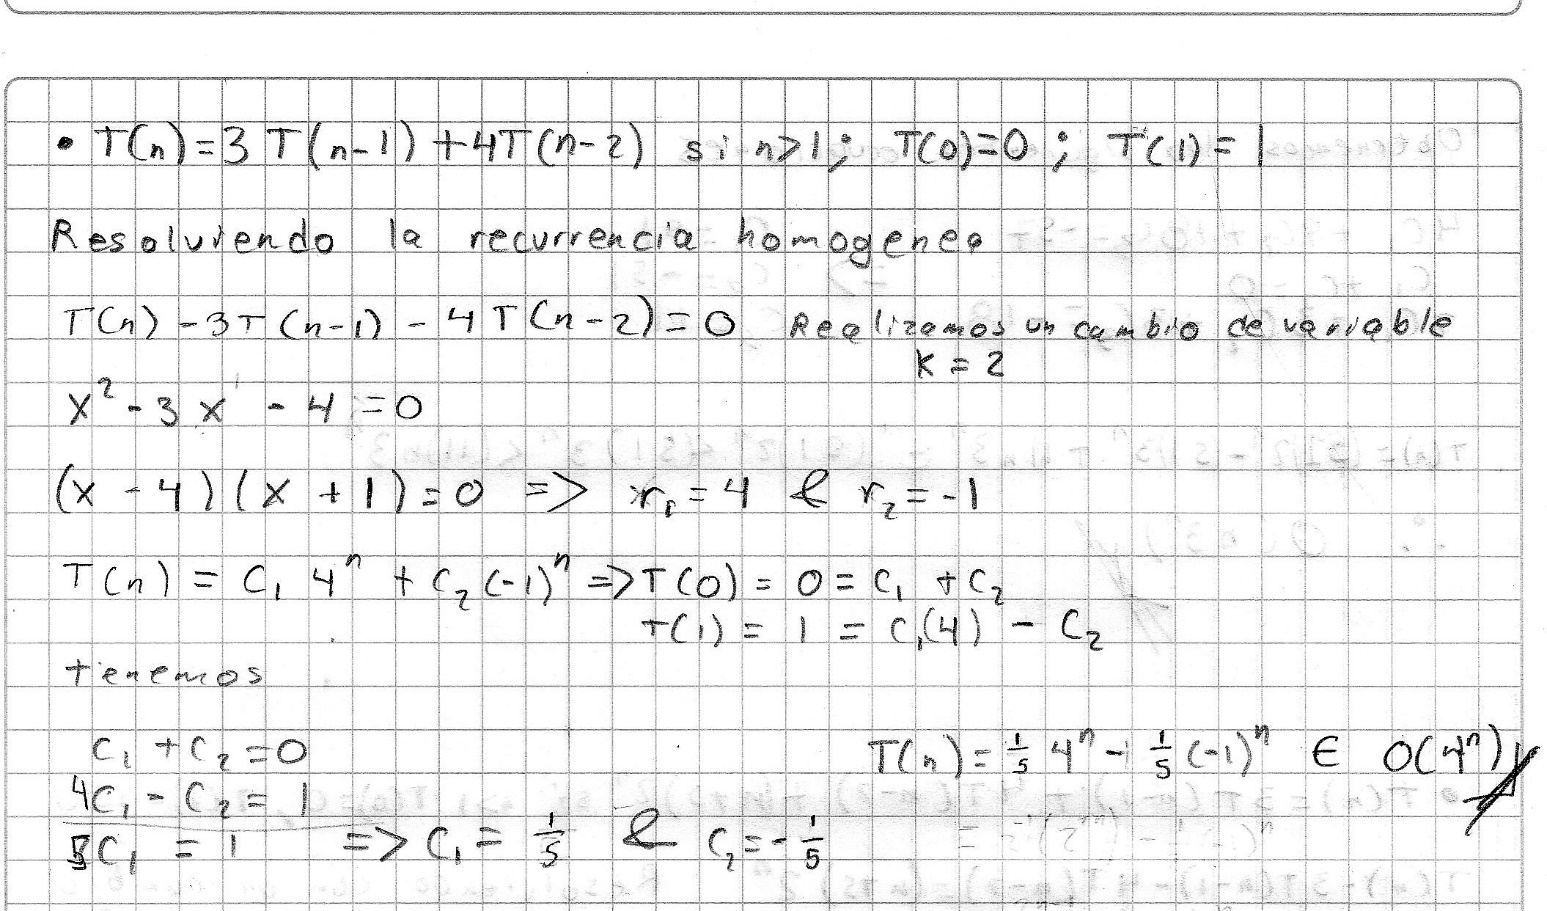 • T(n)=3 T(n-1) +4T(n-2) si n>1; T(0)=0; T(1)=1
Resolviendo la recurrencia homogenea
T(n) -3T(n-1) - 4T(n-2)=0 Realizamos un cambio de variable
K=2
x² - 3x¹ - 4 =0
(x - 4)(x + 1)=0 => r₁=4 & r₂=-1
T(n) = C₁ 4ⁿ + C₂(-1)ⁿ => T(0) = 0 = C₁ + C₂
T(1) = 1 = C₁(4) - C₂
tenemos
C₁ + C₂ =0
4C₁ - C₂ = 1
5C₁ = 1 => C₁ = 1/5 & C₂=-1/5
T(n)= 1/5 4ⁿ - 1/5 (-1)ⁿ ∈ O(4ⁿ)